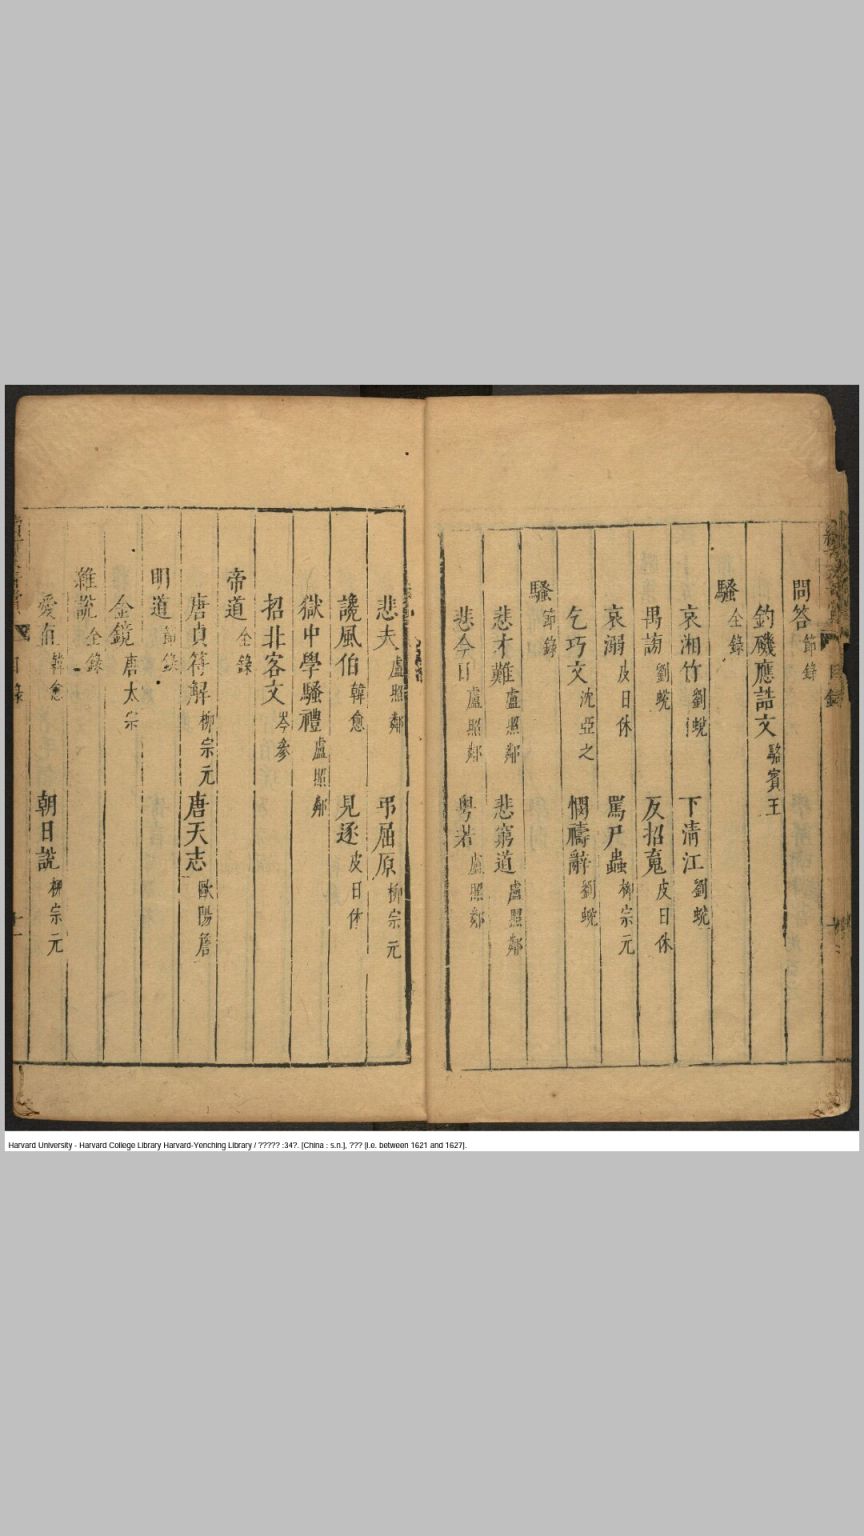 問答 節錄
釣磯應誥文 駱賓王
騷 全錄
哀湘竹 劉蛻 下清江 劉蛻
禹謗 劉蛻 反招䰟 皮日休
哀溺 皮日休 罵尸蟲 柳宗元
乞巧文 沈亞之 憫禱辭 劉蛻
騷 節錄
悲才難 盧照鄰 悲窮道 盧照鄰
悲今日 盧照鄰 粤若 盧照鄰
悲夫 盧照鄰 弔屈原 柳宗元
讒風伯 韓愈 見逐 皮日休
獄中學騷禮 盧照鄰
招北客文 岑參
帝道 全錄
唐貞符解 柳宗元 唐天志 歐陽詹
明道 節錄
金鏡 唐太宗
雜說 全錄
愛直 韓愈 朝日說 柳宗元
目錄
目錄
Harvard University - Harvard College Library Harvard-Yenching Library / ????? :34?. [China : s.n.], ??? [i.e. between 1621 and 1627].